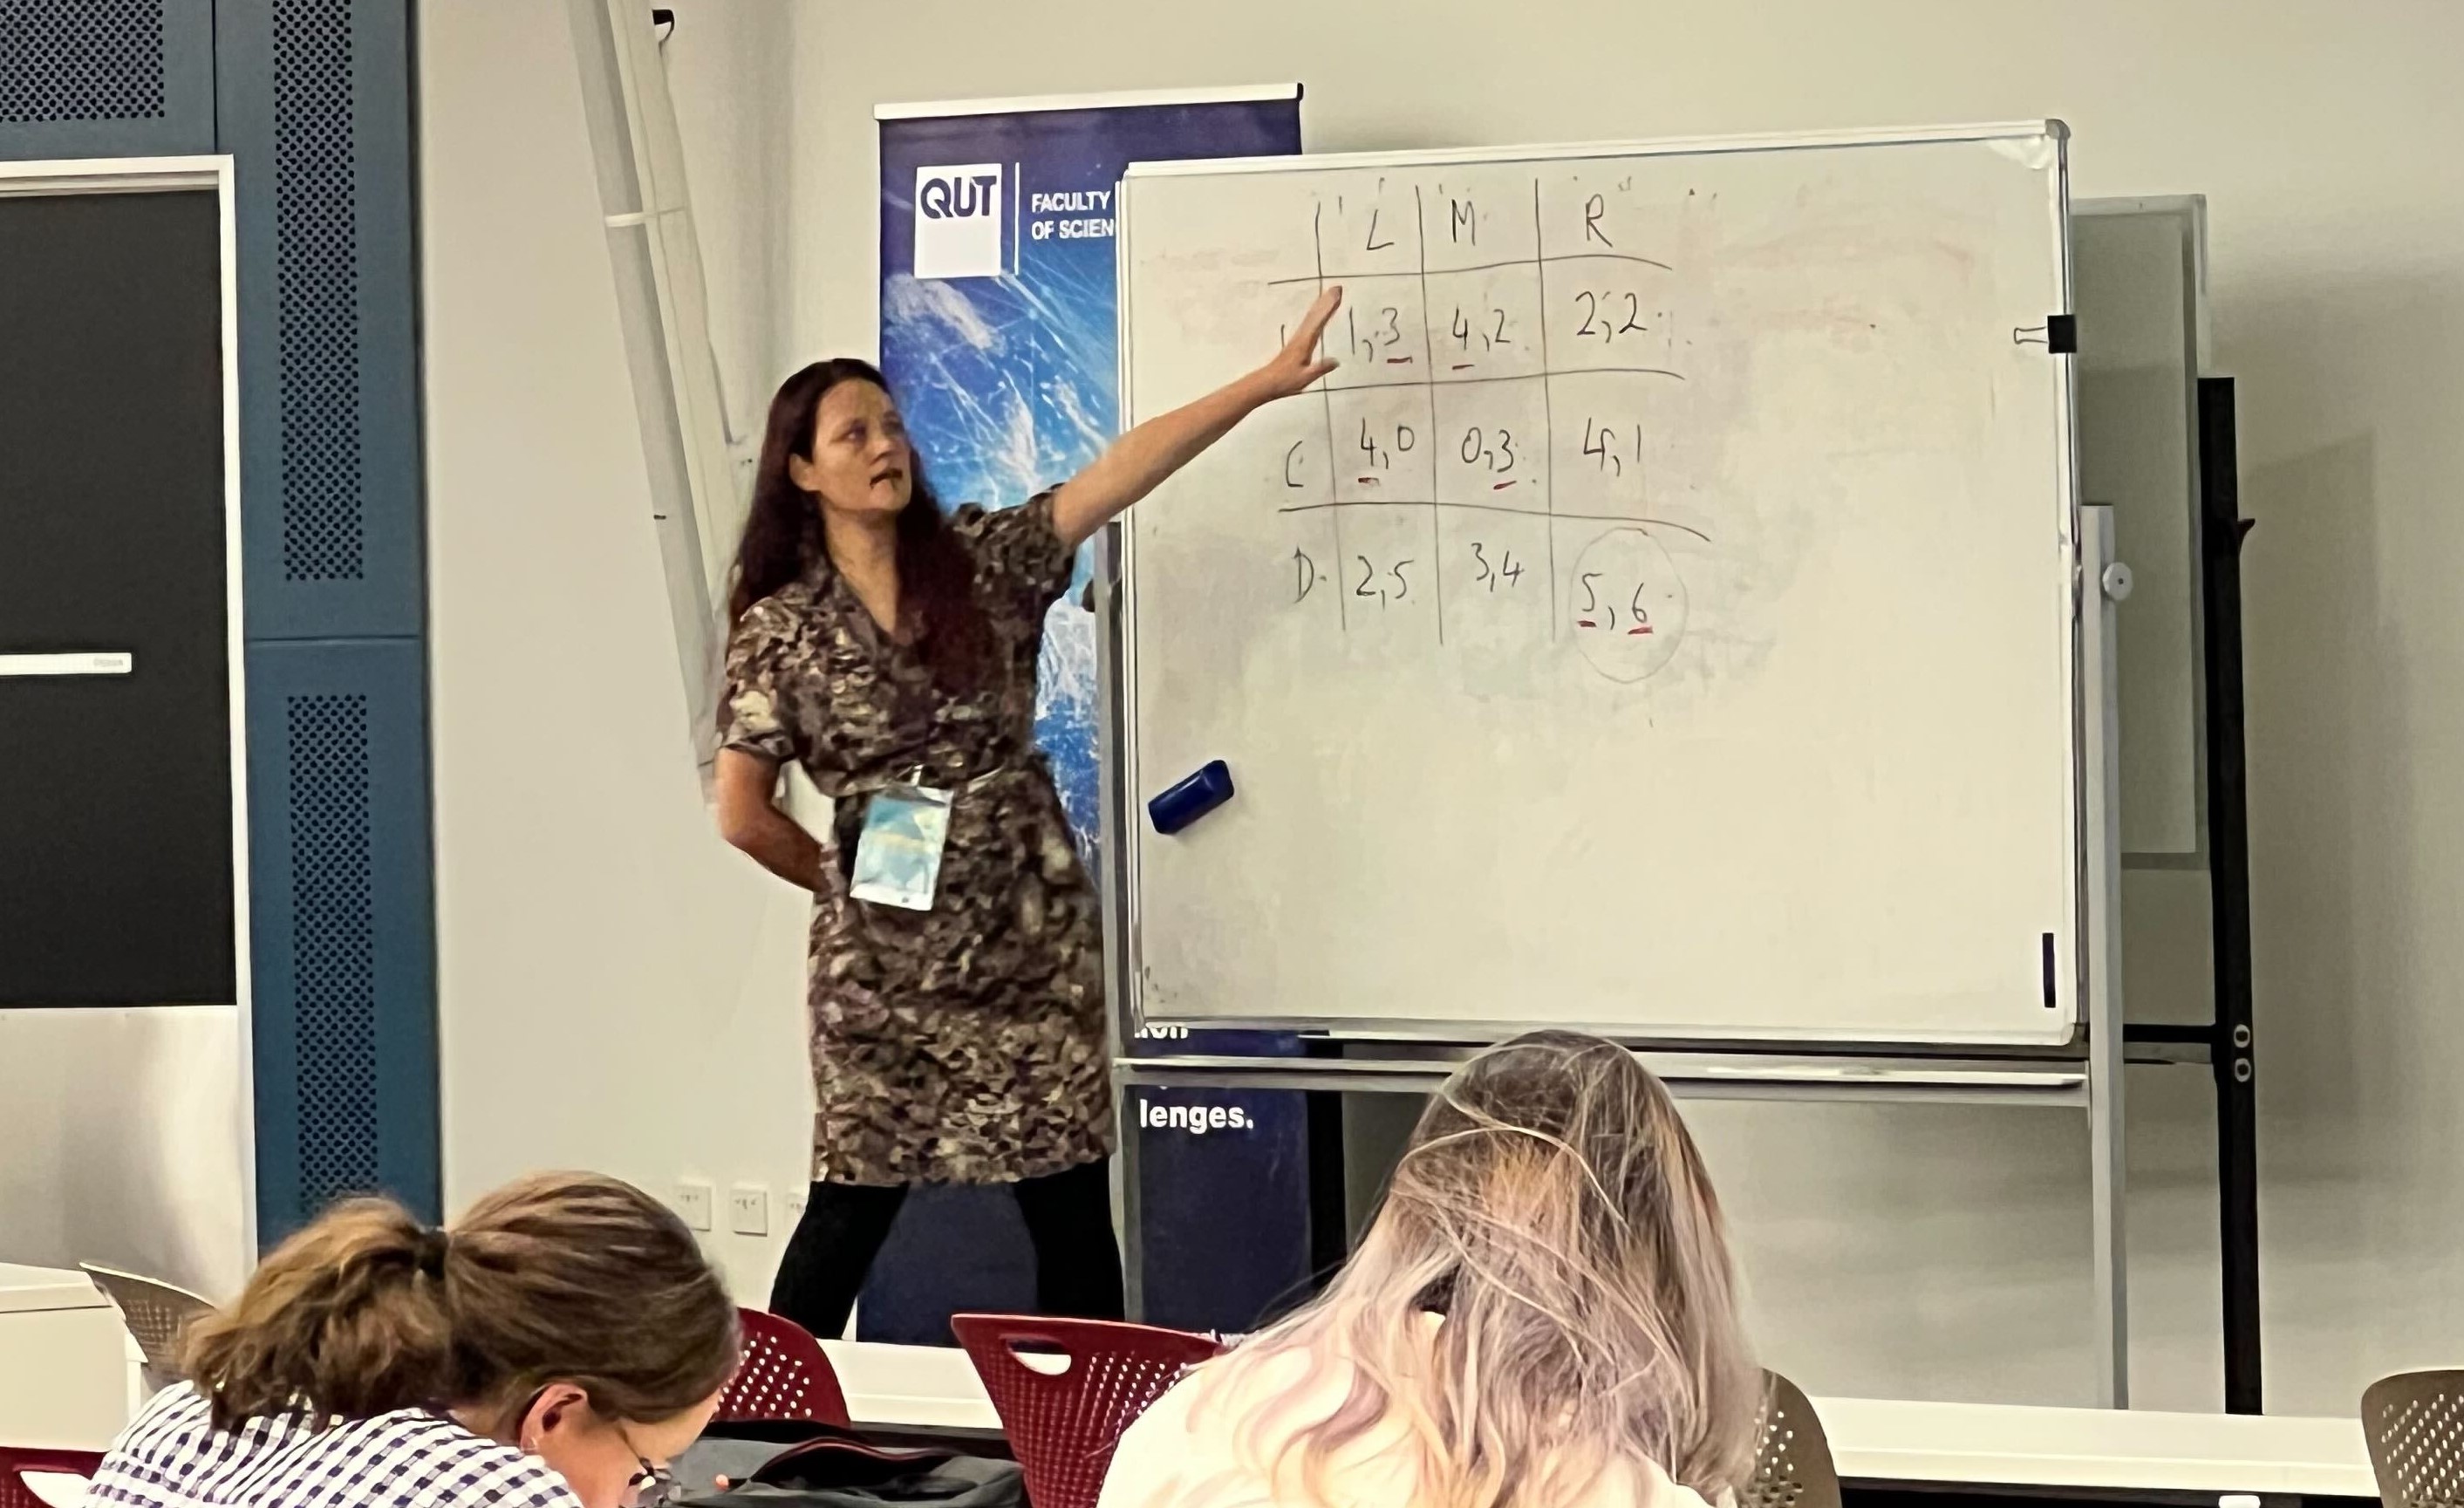 QUT
FACULTY
OF SCIEN
L M R
1,3 4,2 2,2
C 4,0 0,3 4,1
D 2,5 3,4 5,6
lenges.